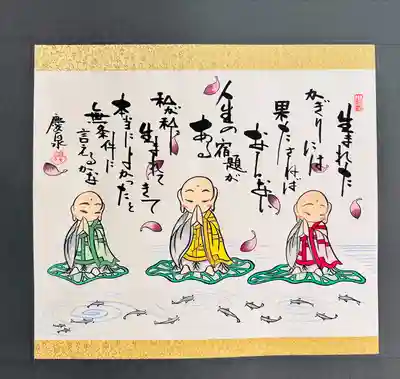 生まれた
かぎりには
果たさねば
ならない
人生の宿題が
ある
私が私に
生まれてきて
本当によかったと
無条件に
言えるかな
慶泉